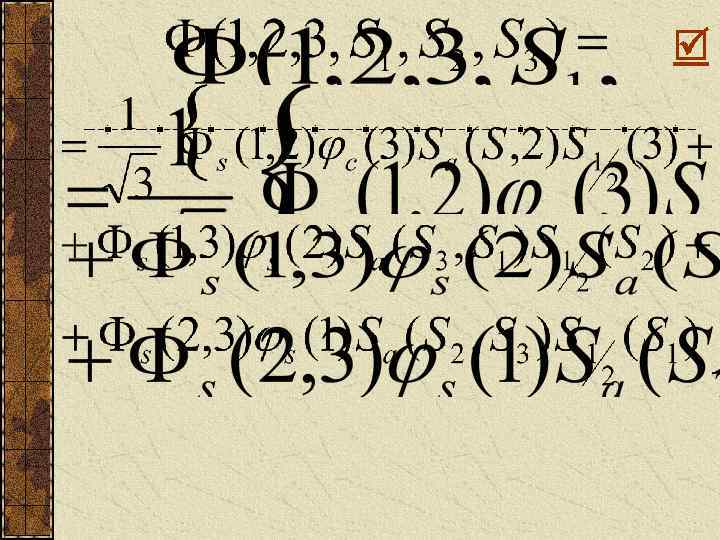 Φ(1,2,3, S₁ , S₂ , S₃) =
= 1/√3 { Φₛ (1,2)φ_c (3)Sₐ (S ,2) S_{1/2} (3) +
+ Φₛ (1,3)φₛ (2)Sₐ (S₃ , S₁ )S_{1/2} (S₂ ) +
+ Φₛ (2,3)φₛ (1)Sₐ (S₂ , S₃ )S_{1/2} (S₁ )